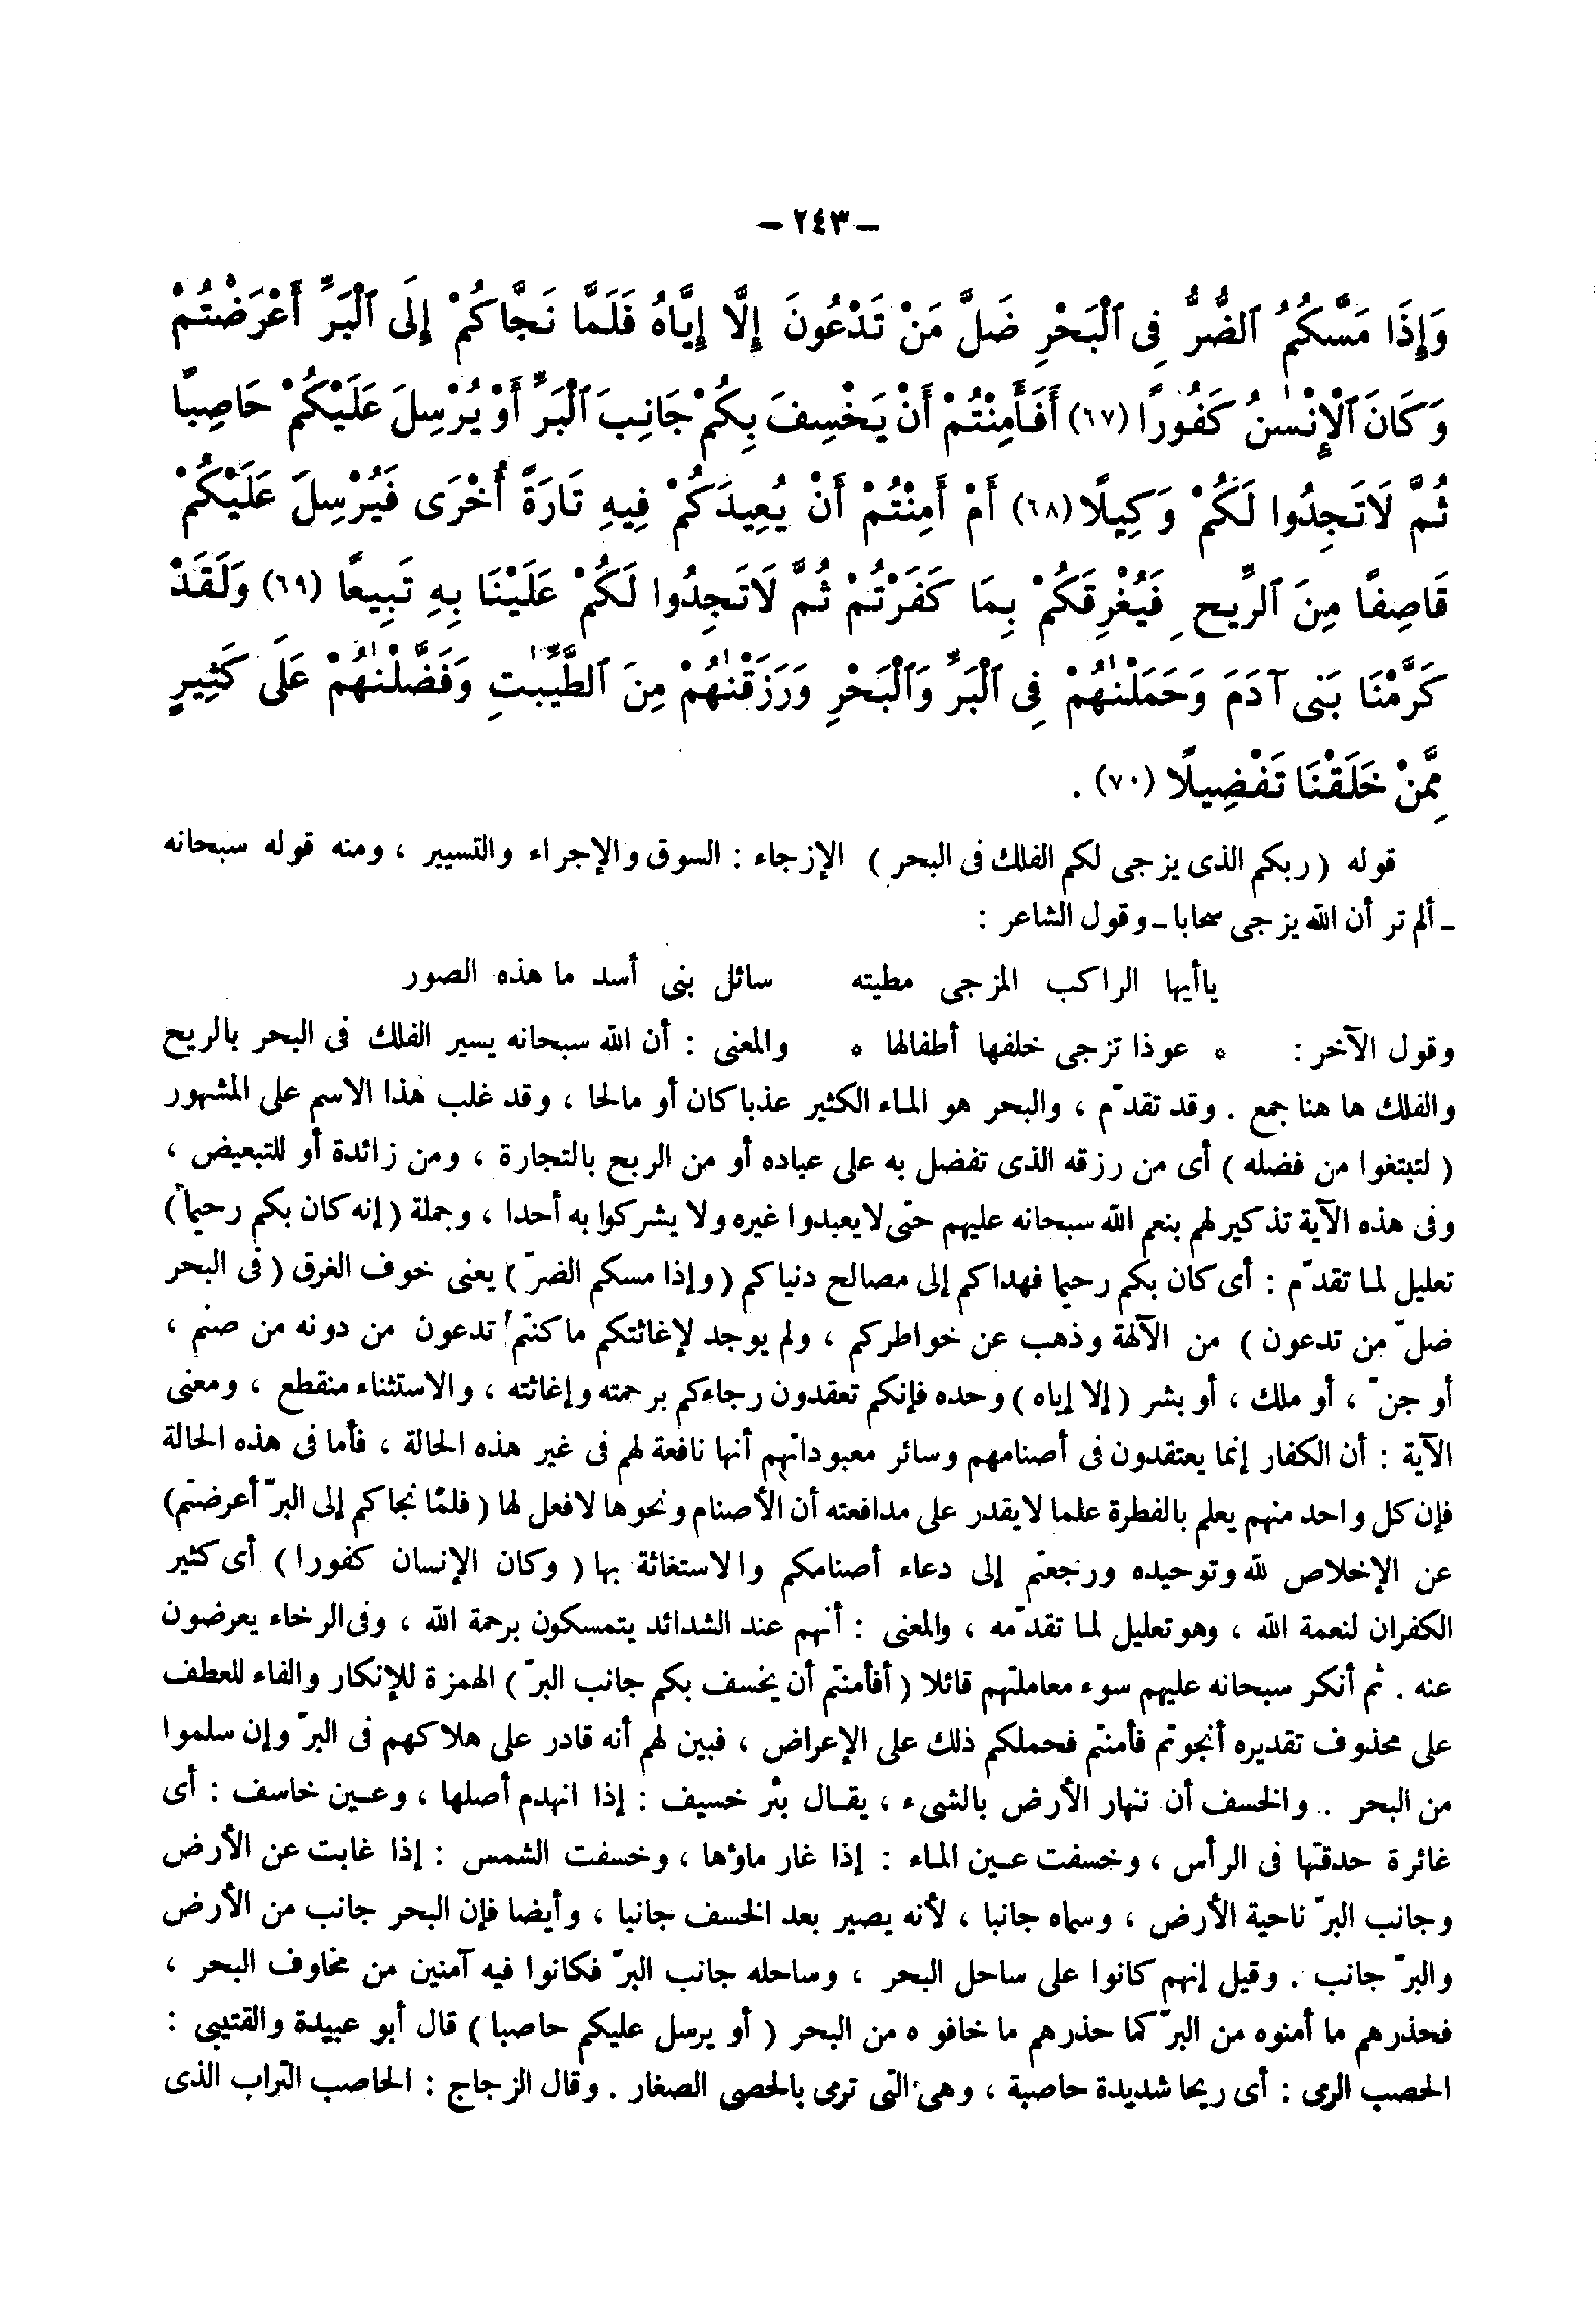 — ٢٤٣ —
وَإِذَا مَسَّكُمُ ٱلضُّرُّ فِى ٱلْبَحْرِ ضَلَّ مَنْ تَدْعُونَ إِلَّا إِيَّاهُ فَلَمَّا نَجَّاكُمْ إِلَى ٱلْبَرِّ أَعْرَضْتُمْ
وَكَانَ ٱلْإِنْسَٰنُ كَفُورًا (٦٧) أَفَأَمِنْتُمْ أَنْ يَخْسِفَ بِكُمْ جَانِبَ ٱلْبَرِّ أَوْ يُرْسِلَ عَلَيْكُمْ حَاصِبًا
ثُمَّ لَا تَجِدُوا لَكُمْ وَكِيلًا (٦٨) أَمْ أَمِنْتُمْ أَنْ يُعِيدَكُمْ فِيهِ تَارَةً أُخْرَى فَيُرْسِلَ عَلَيْكُمْ
قَاصِفًا مِنَ ٱلرِّيحِ فَيُغْرِقَكُمْ بِمَا كَفَرْتُمْ ثُمَّ لَا تَجِدُوا لَكُمْ عَلَيْنَا بِهِ تَبِيعًا (٦٩) وَلَقَدْ
كَرَّمْنَا بَنِى آدَمَ وَحَمَلْنَٰهُمْ فِى ٱلْبَرِّ وَٱلْبَحْرِ وَرَزَقْنَٰهُمْ مِنَ ٱلطَّيِّبَٰتِ وَفَضَّلْنَٰهُمْ عَلَى كَثِيرٍ
مِمَّنْ خَلَقْنَا تَفْضِيلًا (٧٠) .
قوله ( ربكم الذى يزجى لكم الفلك فى البحر ) الإزجاء : السوق والإجراء والتسيير ، ومنه قوله سبحانه
ـ ألم تر أن الله يزجى سحابا ـ وقول الشاعر :
ياأيها الراكب المزجى مطيته سائل بنى أسد ما هذه الصور
وقول الآخر : * عوذا تزجى خلفها أطفالها * والمعنى : أن الله سبحانه يسير الفلك فى البحر بالريح
والفلك ها هنا جمع . وقد تقدّم ، والبحر هو الماء الكثير عذبا كان أو مالحا ، وقد غلب هذا الاسم على المشهور
( لتبتغوا من فضله ) أى من رزقه الذى تفضل به على عباده أو من الربح بالتجارة ، ومن زائدة أو للتبعيض ،
وفى هذه الآية تذكير لهم بنعم الله سبحانه عليهم حتى لا يعبدوا غيره ولا يشركوا به أحدا ، وجملة ( إنه كان بكم رحيما )
تعليل لما تقدّم : أى كان بكم رحيما فهداكم إلى مصالح دنياكم ( وإذا مسكم الضرّ ) يعنى خوف الغرق ( فى البحر
ضلّ من تدعون ) من الآلهة وذهب عن خواطركم ، ولم يوجد لإغاثتكم ما كنتم تدعون من دونه من صنم ،
أو جنّ ، أو ملك ، أو بشر ( إلا إياه ) وحده فإنكم تعقدون رجاءكم برحمته وإغاثته ، والاستثناء منقطع ، ومعنى
الآية : أن الكفار إنما يعتقدون فى أصنامهم وسائر معبوداتهم أنها نافعة لهم فى غير هذه الحالة ، فأما فى هذه الحالة
فإن كل واحد منهم يعلم بالفطرة علما لا يقدر على مدافعته أن الأصنام ونحوها لا فعل لها ( فلمّا نجاكم إلى البرّ أعرضتم )
عن الإخلاص لله وتوحيده ورجعتم إلى دعاء أصنامكم والاستغاثة بها ( وكان الإنسان كفورا ) أى كثير
الكفران لنعمة الله ، وهو تعليل لما تقدّمه ، والمعنى : أنهم عند الشدائد يتمسكون برحمة الله ، وفى الرخاء يعرضون
عنه . ثم أنكر سبحانه عليهم سوء معاملتهم قائلا ( أفأمنتم أن يخسف بكم جانب البرّ ) الهمزة للإنكار والفاء للعطف
على محذوف تقديره أنجوتم فأمنتم فحملكم ذلك على الإعراض ، فبين لهم أنه قادر على هلاكهم فى البرّ وإن سلموا
من البحر . والخسف أن تنهار الأرض بالشىء ، يقال بئر خسيف : إذا انهدم أصلها ، وعين خاسف : أى
غائرة حدقتها فى الرأس ، وخسفت عين الماء : إذا غار ماؤها ، وخسفت الشمس : إذا غابت عن الأرض
وجانب البرّ ناحية الأرض ، وسماه جانبا ، لأنه يصير بعد الخسف جانبا ، وأيضا فإن البحر جانب من الأرض
والبرّ جانب . وقيل إنهم كانوا على ساحل البحر ، وساحله جانب البرّ فكانوا فيه آمنين من مخاوف البحر ،
فحذرهم ما أمنوه من البرّ كما حذرهم ما خافوه من البحر ( أو يرسل عليكم حاصبا ) قال أبو عبيدة والقتيبى :
الحصب الرمى : أى ريحا شديدة حاصبة ، وهى التى ترمى بالحصى الصغار . وقال الزجاج : الحاصب التراب الذى